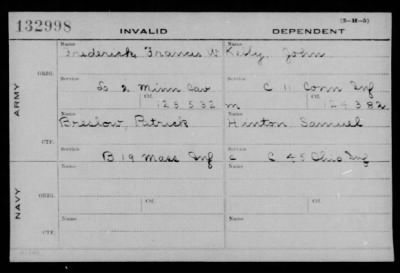 132998
INVALID
DEPENDENT
(3-H-5)
ARMY
ORIG.
Name
Frederick, Francis W
Name
Kelly, John
Service
Co 2 Minn Cav
Service
C 11 Conn Inf
Ctf.
123532
m
Ctf.
124382
CTF.
Name
Breslow, Patrick
Name
Hinton Samuel
Service
B 19 Mass Inf
Service
C C 45 Ohio Inf
NAVY
ORIG.
Name
Name
Service
Ctf.
Service
Ctf.
CTF.
Name
Name
Service
Service